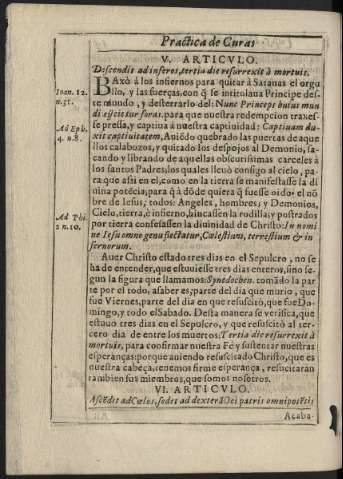 Practica de Curas
V. ARTICVLO.
Descendit ad inferos, tertia die resurrexit à mortuis.
BAxò à los infiernos para quitar à Satanas el orgu
llo, y las fuerças, con q̃ se intitolaua Principe des-
te mundo, y desterrarlo del: Nunc Princeps huius mun
di eijcietur foras. para que nuestra redempcion traxes-
se pressa, y captiua à nuestra captiuidad: Captiuam du-
xit captiuitatem, Auiẽdo quebrado las puertas de aque
llos calabozos, y quitado los despojos al Demonio, sa-
cando y librando de aquellas obscurisimas carceles à
los santos Padres, los quales lleuò consigo al cielo, pa-
ra que assi en el, como en la tierra se manifestasse la di
uina potẽcia, para q̃ à dõde quiera q̃ fuesse oido el nõ
bre de Iesus; todos: Angeles, hombres, y Demonios,
Cielo, tierra, è infierno, hincassen la rudilla, y postrados
por tierra confesassen la diuinidad de Christo: In nomi
ne Iesu omne genu flectatur, Cœlestium, terrestium & in
fernorum.
Auer Christo estado tres dias en el Sepulcro, no se
ha de entender, que estuuiesse tres dias enteros, sino se-
gun la figura que llamamos: Synedochen. tomãdo la par
te por el todo, a saber es, parte del dia que murio, que
fue Viernes, parte del dia en que resuscitò, que fue Do-
mingo, y todo el Sabado. Desta manera se verifica, que
estuuo tres dias en el Sepulcro, y que resuscitò al ter-
cero dia de entre los muertos: Tertia die resurrexit à
mortuis, para confirmar nuestra Fè y sustentar nuestras
esperanças: porque auiendo resuscitado Christo, que es
nuestra cabeça, tenemos firme esperança, resucitaran
tambien sus miembros, que somos nosotros.
VI. ARTICVLO.
Ascẽdit ad Cœlos, sedet ad dexterã Dei patris omnipotẽtis
Acaba-
Ioan. 12.
n. 31.
Ad Eph.
4. n. 8.
Ad Phi.
2 n. 10.